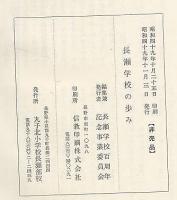 昭和四十九年十月二十五日 印刷
昭和四十九年十一月三日 発行
【非売品】
長瀬学校の歩み
編集兼
発行者
長瀬学校百周年
記念事業委員会
印刷所
信教印刷株式会社
発行所
丸子北小学校長瀬部校